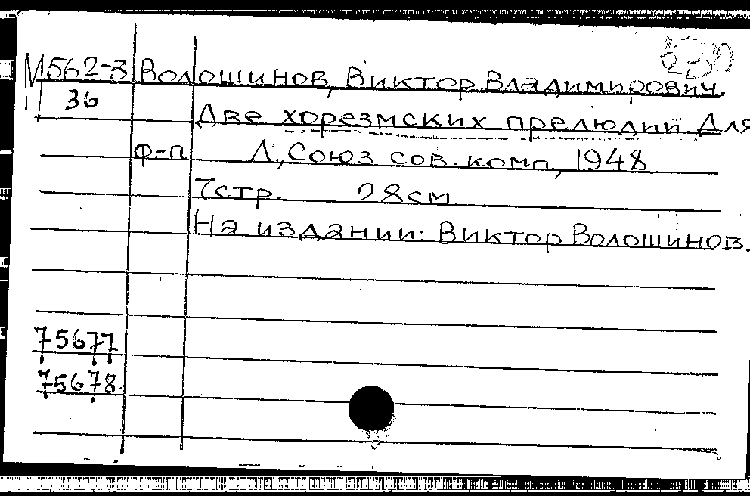 М562-3 Волошинов, Виктор Владимирович.
36
Две хорезмских прелюдии для
ф-п Л, Союз сов. комп, 1948
7стр. 28см
На издании: Виктор Волошинов.
75677
75678